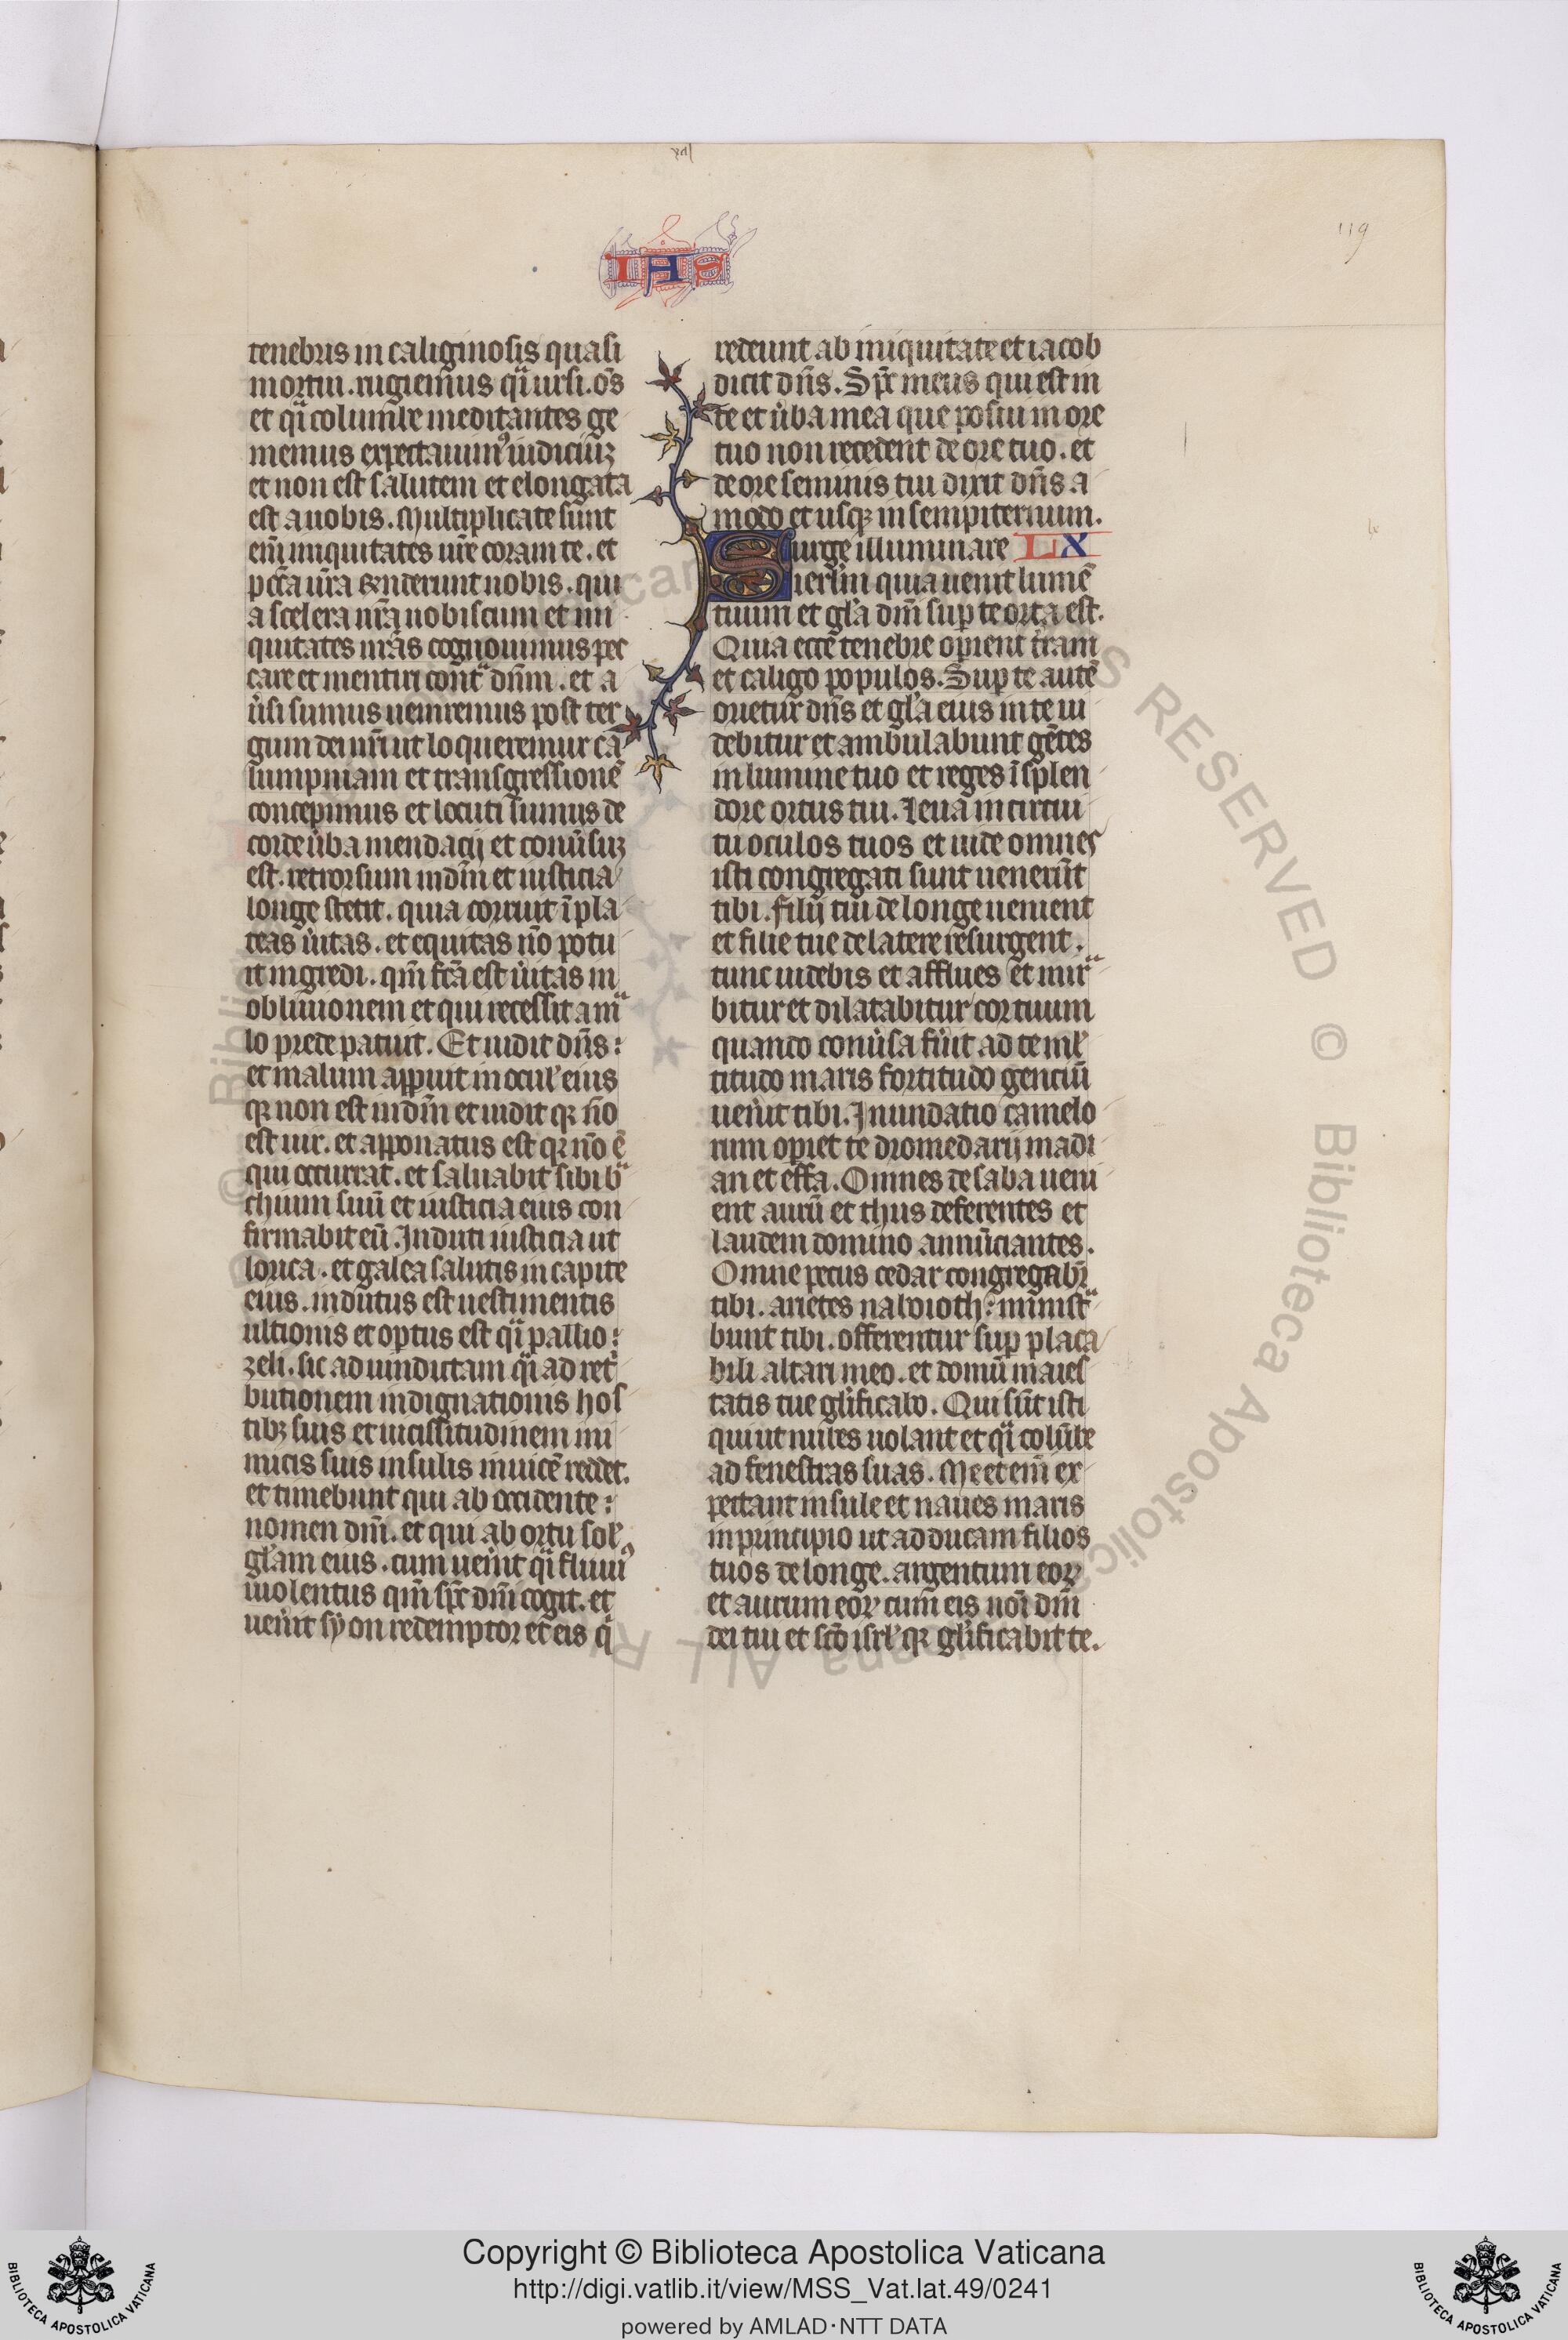 xxi
IAS
119
tenebris in caliginosis quasi
mortui. rugiemus qͣi ursi. om̄s
et qͣi columbe meditantes ge
memus expectauimꝰ iudiciuꝫ
et non est salutem et elongata
est a nobis. Multiplicate sunt
em̄ iniquitates nr̄e coram te. et
pctā nr̄a rn̄derunt nobis. qui
a scelera nr̄a nobiscum et ini
quitates nrās cognouimus pec
care et mentiri contͣ dnm̄. et a
ůsi sumus ne iremus post ter
gum dei nr̄i ut loqueremur ca
lumpniam et transgressionē
concepimus et locuti sumus de
corde ůba mendacij et conůsuꝫ
est. retrorsum iudm̄ et iusticia
longe stetit. quia corruit ī pla
teas ůitas. et equitas nō potu
it ingredi. qm̄ fcā est ůitas in
obliuionem et qui recessit a mͣ
lo prede patuit. Et uidit dn̄s:
et malum apꝑuit in ocul̓ eius
qꝛ non est iudm̄ et uidit qꝛ nō
est uir. et apponatus est qꝛ nō ē
qui occurrat. et saluabit sibi bͣ
chium suū et iusticia eius con
firmabit eū. Induti iusticia ut
lorica. et galea salutis in capite
eius. indutus est uestimentis
ultionis et optus est qͣi pallio:
zeli. sic ad uindictam qͣi ad ret
butionem indignationis hos
tibꝫ suis et uicissitudinem ini
micis suis insulis inuicē reddet.
et timebunt qui ab occidente:
nomen dnī. et qui ab ortu sol̓
gl̓am eius. cum uen̓it qͣi fluuiꝰ
uiolentus qm̄ spc̄ dnī cogit. et
uen̓it syon redemptor et eis q̓
redeunt ab iniquitate et iacob
dicit dn̄s. Spc̄ meus qui est in
te et ůba mea que posui in ore
tuo non recedent de ore tuo. et
de ore seminis tui dixit dn̄s a
modo et usqꝫ in sempiternum.
Surge illuminare LX
ierl̄m quia uenit lumē
tuum et gl̓a dnī suꝑ te orta est.
Quia ecce tenebre oꝑient tr̄am
et caligo populos. Suꝑ te autē
orietur dn̄s et gl̓a eius in te ui
debitur et ambulabunt gētes
in lumine tuo et reges ī splen
dore ortus tui. Leua in circui
tu oculos tuos et uide omnes
isti congregati sunt uenerūt
tibi. filij tui de longe uenient
et filie tue de latere resurgent.
tunc uidebis et afflues et mirͣ
bitur et dilatabitur cor tuum
quando conůsa fůit ad te ml̓
titudo maris fortitudo genciū
uen̓it tibi. Inundatio camelo
rum oꝑiet te dromedarij madi
an et effa. Omnes de saba ueni
ent aurū et thus deferentes et
laudem domino annūciantes.
Omne pecus cedar congregabr̄
tibi. arietes nabaioth: ministͣ
bunt tibi. offerentur suꝑ placa
bili altari meo. et domū maies
tatis tue gl̓ificabo. Qui sūt isti
qui ut nubes uolant et qͣi colūbe
ad fenestras suas. Me et em̄ ex
pectant insule et naues maris
in principio ut adducam filios
tuos de longe. argentum eoꝝ
et aurum eoꝝ cum eis nōi dnī
dei tui et scō isrl̓ qꝛ gl̓ificabit te.
lx
Copyright © Biblioteca Apostolica Vaticana
http://digi.vatlib.it/view/MSS_Vat.lat.49/0241
powered by AMLAD·NTT DATA
BIBLIOTECA APOSTOLICA VATICANA
BIBLIOTECA APOSTOLICA VATICANA